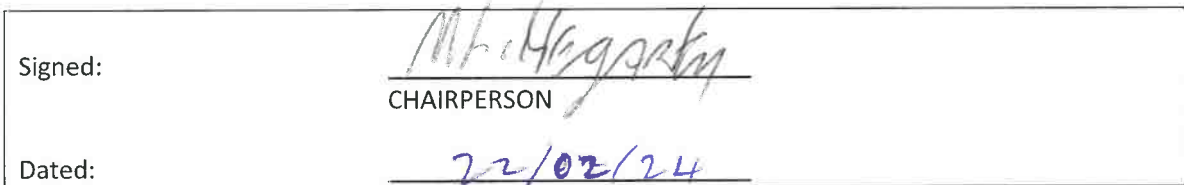 Signed: Hegarty
CHAIRPERSON
Dated: 22/02/24